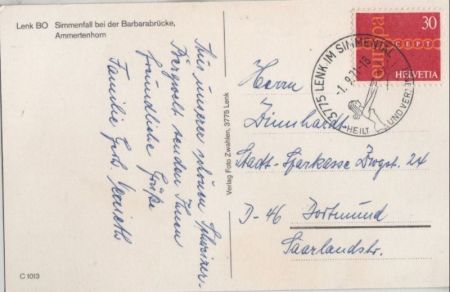 Lenk BO Simmenfall bei der Barbarabrücke,
Ammertenhorn
Aus unserer schönen Schweizer-
Bergwelt senden Ihnen
freundliche Grüße
Familie
C 1013
Verlag Foto Zwahlen, 3775 Lenk
3775 LENK IM SIMMENTAL
HEILT UND VER
europa
CEPT
30
HELVETIA
Herrn
Dinnhardt
Stadt-Sparkasse Zwgst. 24
D-46 Dortmund
Saarlandstr.